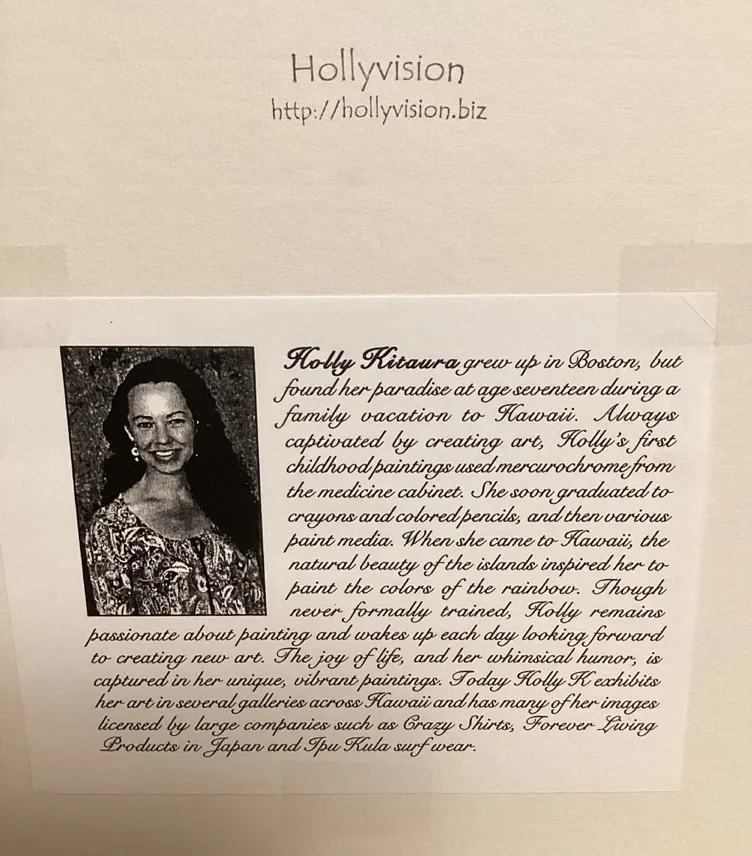 Hollyvision
http://hollyvision.biz
Holly Kitaura grew up in Boston, but
found her paradise at age seventeen during a
family vacation to Hawaii. Always
captivated by creating art, Holly's first
childhood paintings used mercurochrome from
the medicine cabinet. She soon graduated to
crayons and colored pencils, and then various
paint media. When she came to Hawaii, the
natural beauty of the islands inspired her to
paint the colors of the rainbow. Though
never formally trained, Holly remains
passionate about painting and wakes up each day looking forward
to creating new art. The joy of life, and her whimsical humor, is
captured in her unique, vibrant paintings. Today Holly K exhibits
her art in several galleries across Hawaii and has many of her images
licensed by large companies such as Crazy Shirts, Forever Living
Products in Japan and Ipu Kula surf wear.